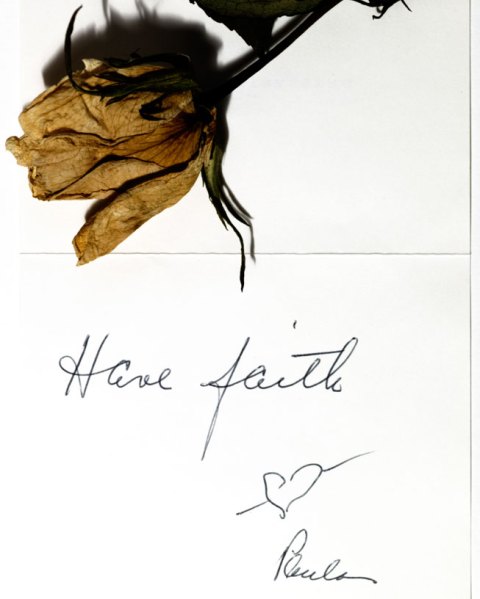 Have faith
Paula